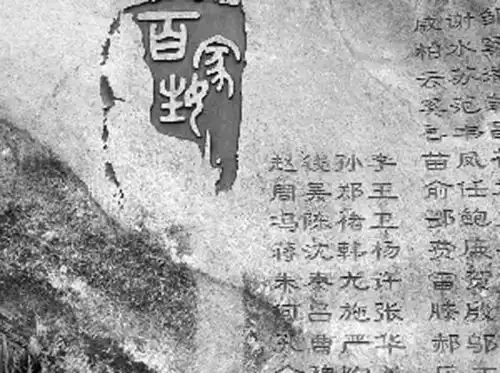 百家姓
赵钱孙李
周吴郑王
冯陈褚卫
蒋沈韩杨
朱秦尤许
何吕施张
孔曹严华
戚谢
柏水
云苏
奚范
韦
苗凤
俞任
酆鲍
费廉
雷贺
滕殷
郝邬